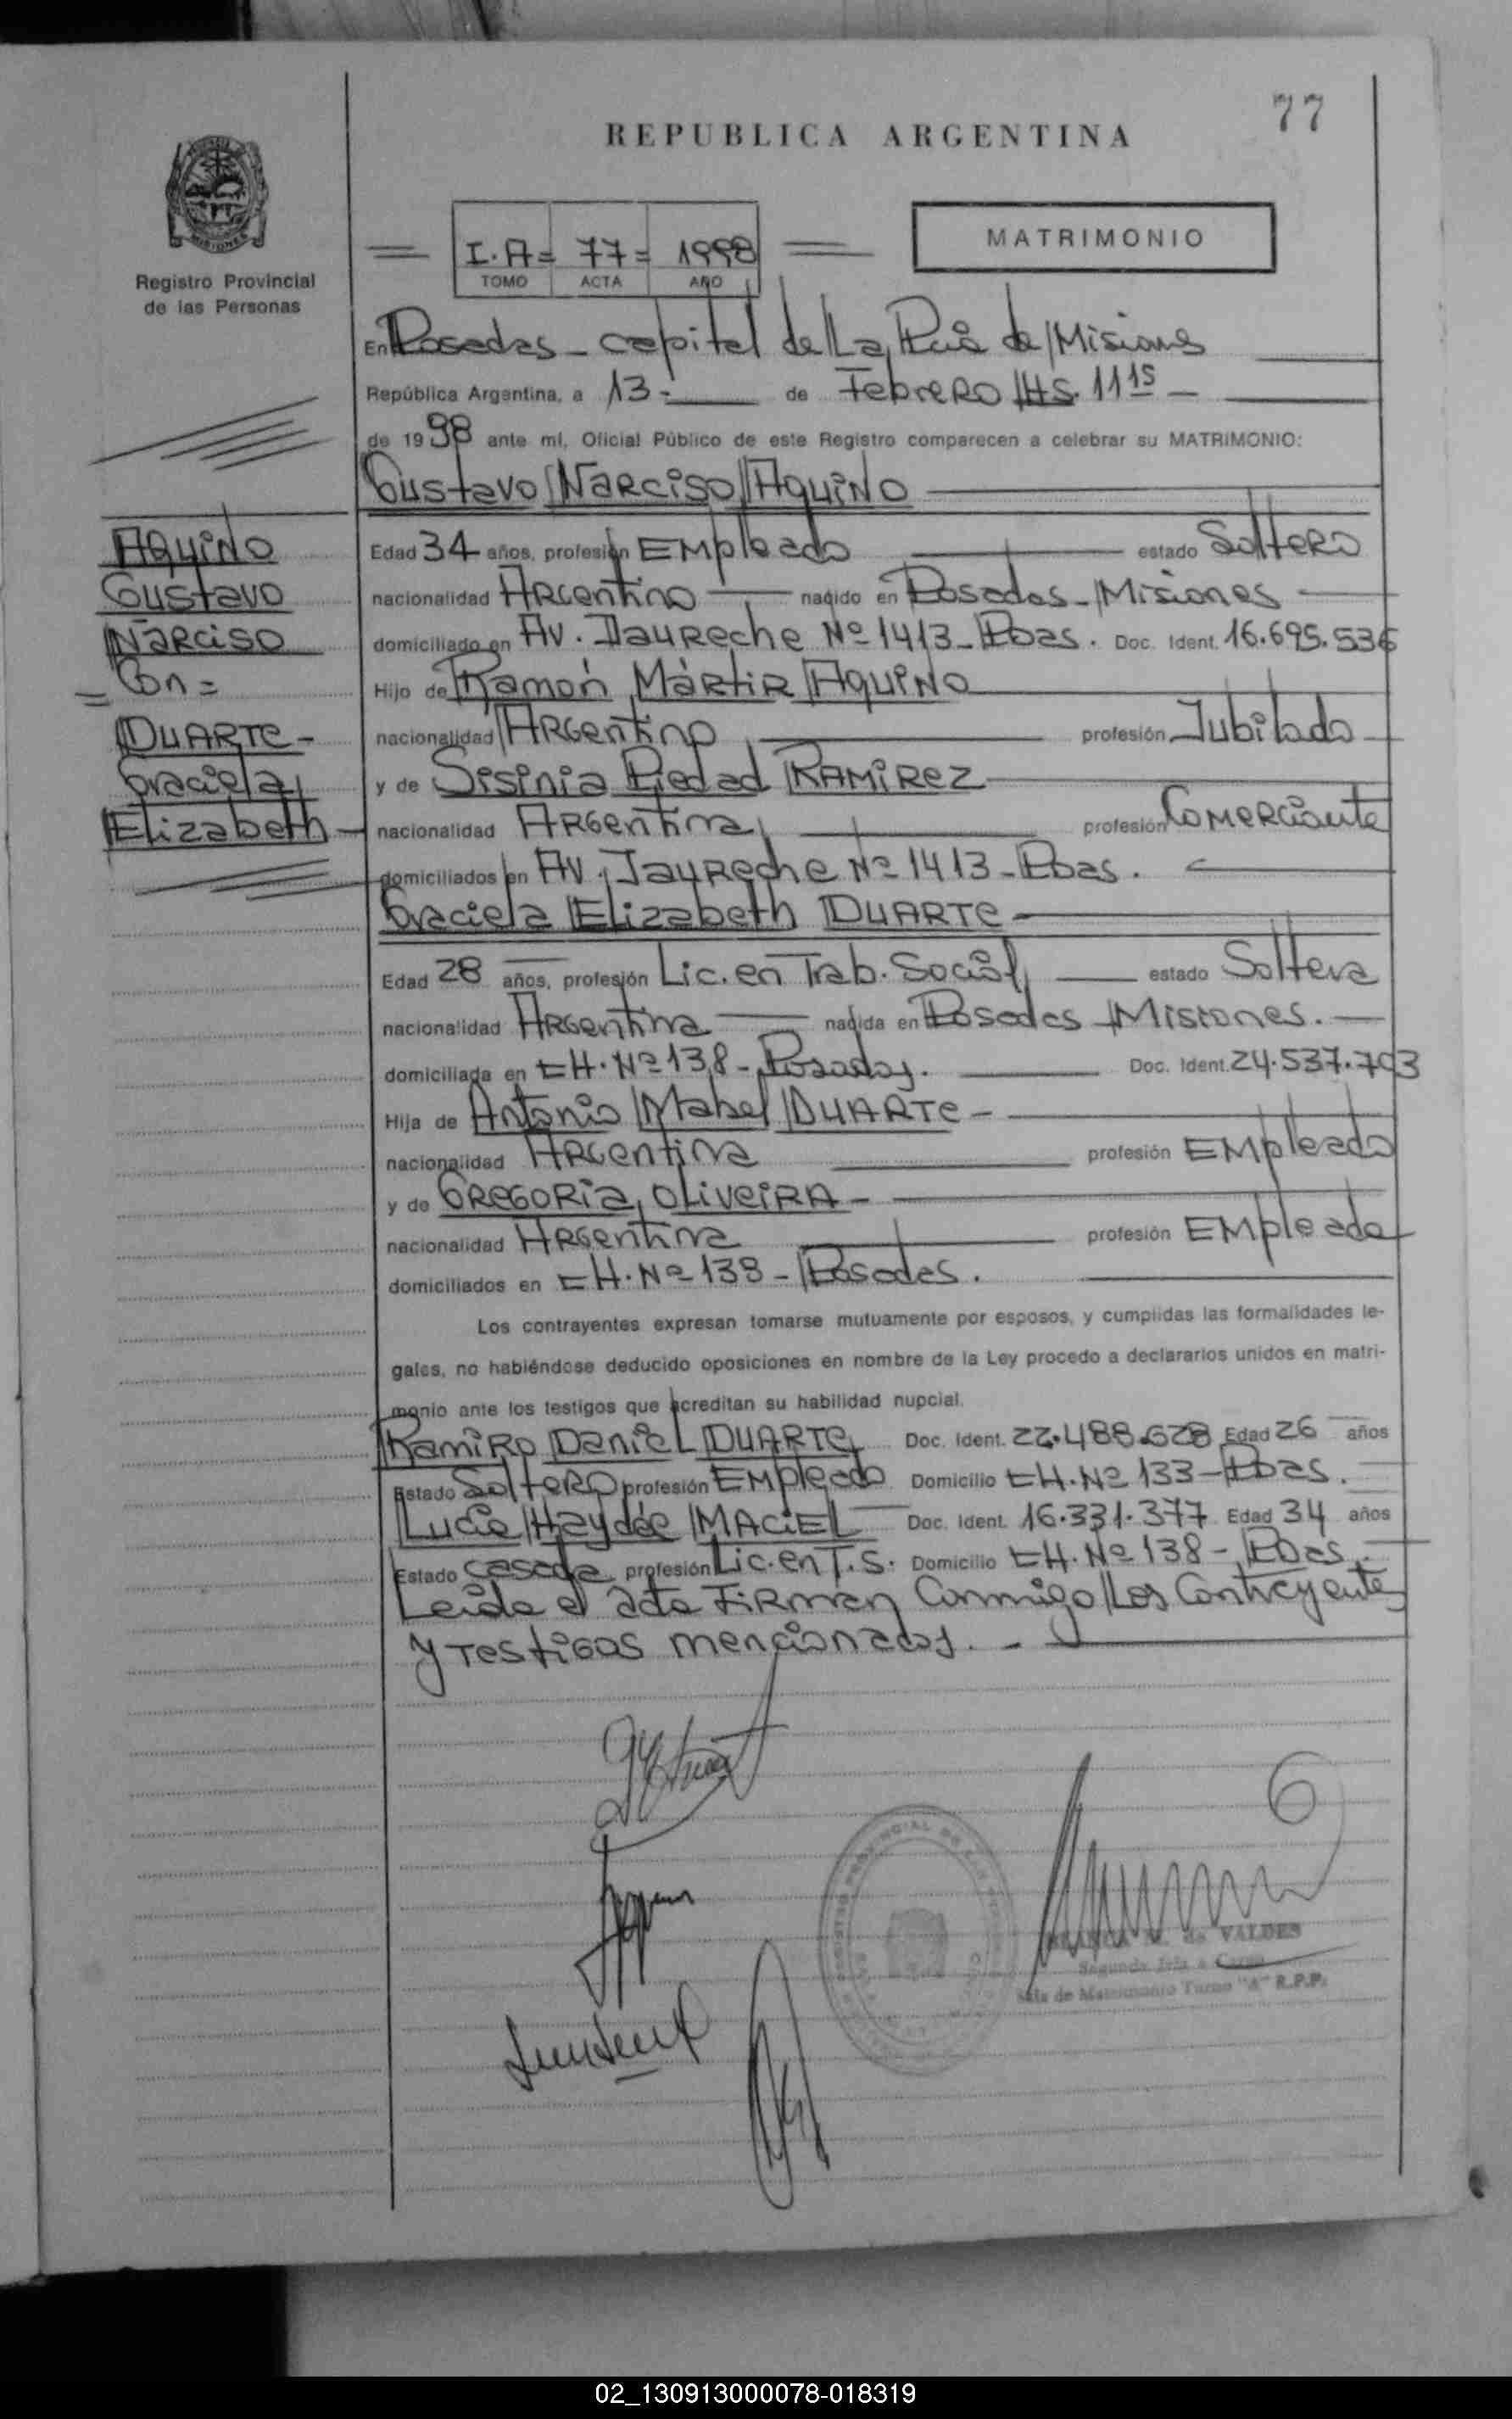 77
REPUBLICA ARGENTINA
I.A= 77= 1998
TOMO ACTA AÑO
MATRIMONIO
Registro Provincial
de las Personas
En Posadas - capital de La Pcia de Misiones
República Argentina, a 13- de Febrero Hs. 11 15 -
de 1998 ante mí, Oficial Público de este Registro comparecen a celebrar su MATRIMONIO:
Gustavo Narciso Aquino
Aquino
Gustavo
Narciso
= Con =
DUARTE -
Graciela
Elizabeth -
Edad 34 años, profesión Empleado estado Soltero
nacionalidad Argentino nacido en Posadas - Misiones
domiciliado en Av. Jaureche Nº 1413 - Pdas. Doc. Ident. 16.695.536
Hijo de Ramón Mártir Aquino
nacionalidad Argentino profesión Jubilado
y de Sisinia Piedad Ramirez
nacionalidad Argentina profesión Comerciante
domiciliados en Av. Jaureche Nº 1413 - Pdas.
Graciela Elizabeth DUARTE -
Edad 28 años, profesión Lic. en Trab. Social estado Soltera
nacionalidad Argentina nacida en Posadas - Misiones.
domiciliada en CH. Nº 138 - Posadas. Doc. Ident. 24.537.703
Hija de Antonio Mabel DUARTE -
nacionalidad Argentina profesión Empleado
y de Gregoria Oliveira -
nacionalidad Argentina profesión Empleada
domiciliados en CH. Nº 138 - Posadas.
Los contrayentes expresan tomarse mutuamente por esposos, y cumplidas las formalidades le-
gales, no habiéndose deducido oposiciones en nombre de la Ley procedo a declararlos unidos en matri-
monio ante los testigos que acreditan su habilidad nupcial.
Ramiro Daniel DUARTE Doc. Ident. 22.488.628 Edad 26 años
Estado Soltero profesión Empleado Domicilio CH. Nº 133 - Pdas.
Lucia Haydée MACIEL Doc. Ident. 16.331.377 Edad 34 años
Estado casada profesión Lic. en T.S. Domicilio CH. Nº 138 - Pdas.
Leída el acta Firman Conmigo Los Contrayentes
y Testigos mencionados. -
6
de VALDES
Segunda Jefa a Cargo
Sala de Matrimonio Turno "A" R.P.P.
02_130913000078-018319